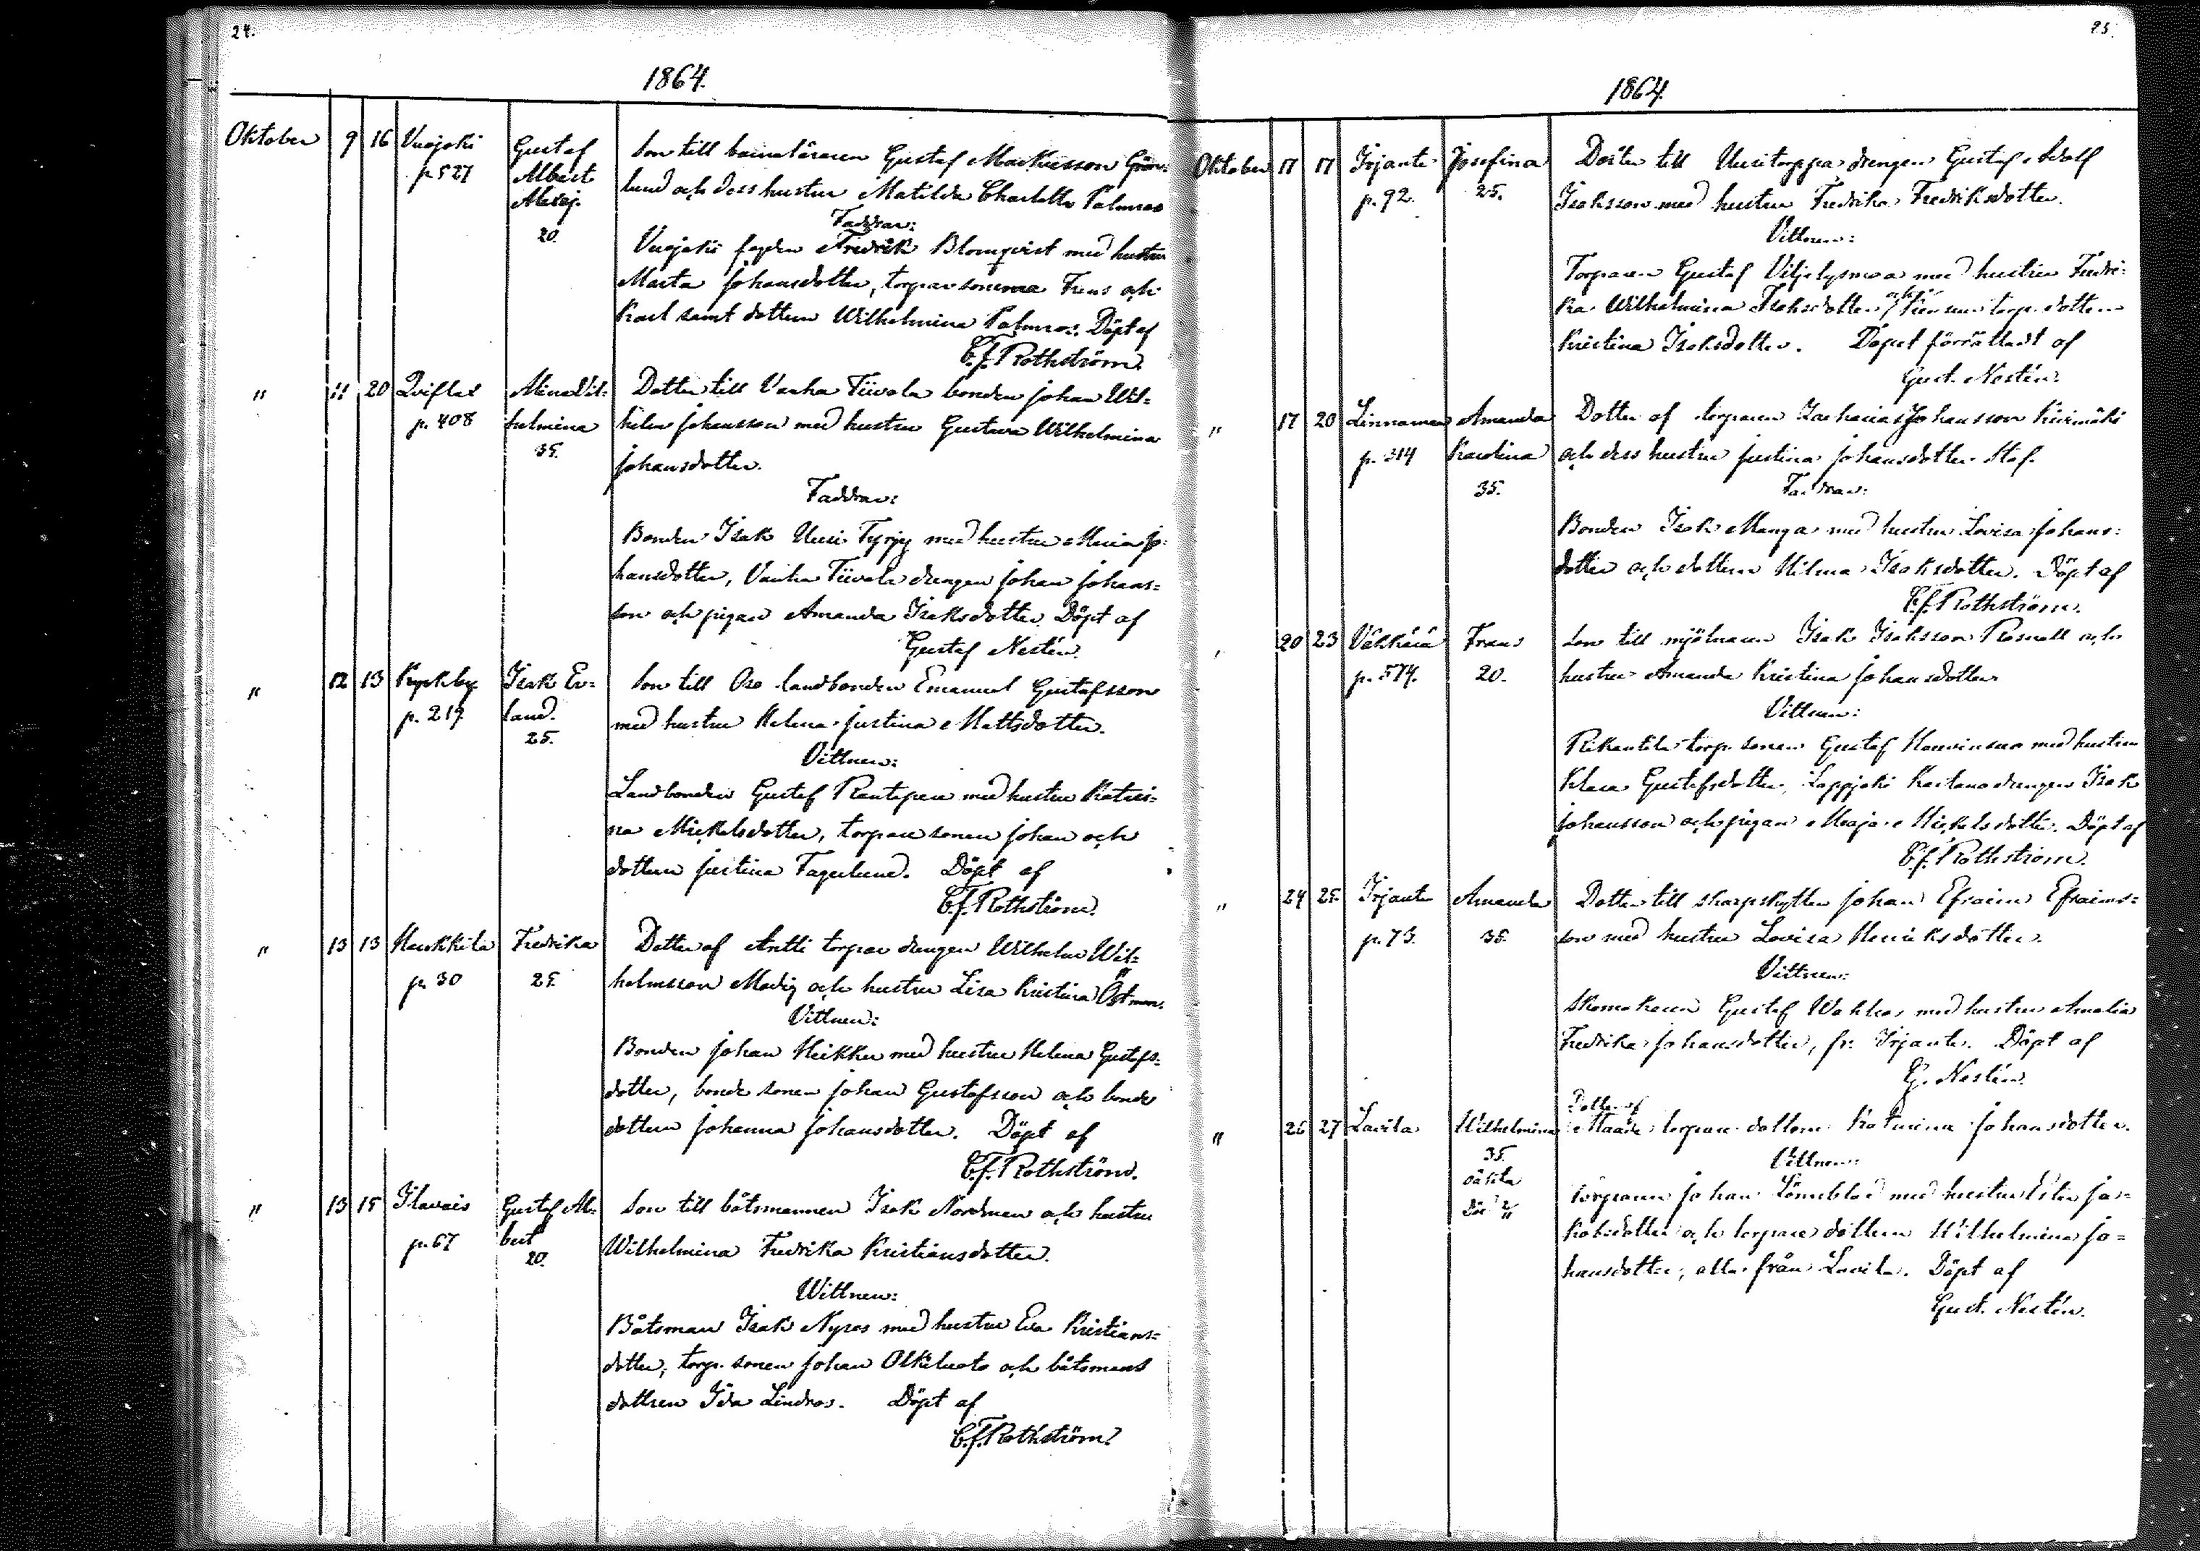 24.
1864.
Oktober 9 16 Vuojoki Gustaf Son till barnaläraren Gustaf Markusson Grön-
p. 527 Albert lund och dess hustru Matilda Charlotta Palmros
Alexej. Faddrar:
20. Vuojoki fogden Fredrik Blomqvist med hustru
Maria Johansdotter, torparsönerna Frans och
Karl samt dottern Wilhelmina Palmros. Döpt af
C.J. Rothström.
" 11 20 Qviflax Mina Vil- Dotter till Vanha Tiivola bonden Johan Wil-
p. 408 helmina helm Johansson med hustru Gustava Wilhelmina
35. Johansdotter.
Faddrar:
Bonden Isak Uusi Tyrjy med hustru Maria Jo-
hansdotter, Vanha Tiivola drengen Johan Johans-
son och pigan Amanda Isaksdotter. Döpt af
Gustaf Nestén.
" 12 13 Kyrkby Isak Ev- Son till Oso landbonden Emanuel Gustafsson
p. 219. land. med hustru Helena Justina Mattsdotter.
25. Vittnen:
Landbonden Gustaf Rantapere med hustru Katri-
na Mickelsdotter, torparesonen Johan och
dottern Justina Fagerlund. Döpt af
C.J. Rothström.
" 13 13 Hankkila Fredrika Dotter af Antti torpar drengen Wilhelm Wil-
p. 30 25. helmsson Modig och hustru Lisa Kristina Östman.
Vittnen:
Bonden Johan Heikku med hustru Helena Gustafs-
dotter, bonde sonen Johan Gustafsson och bonde
dottern Johanna Johansdotter. Döpt af
C.J. Rothström.
" 13 15 Ilavais Gustaf Al- Son till båtsmannen Isak Nordman och hustru
p. 67 bert Wilhelmina Fredrika Kristiansdotter.
20.
Wittnen:
Båtsman Isak Nyros med hustru Eva Kristians-
dotter, torp. sonen Johan Olkiluoto och båtsmans
dottren Ida Lindros. Döpt af
C.J. Rothström.
25.
1864.
Oktober 17 17 Irjante Josefina Dotter till Uusitorppa drengen Gustaf Adolf
p. 92. 25. Isaksson med hustru Fredrika Fredriksdotter.
Vittnen:
Torparen Gustaf Viljelysmaa med hustru Fredri-
ka Wilhelmina Isaksdotter torp. dottern
Kristina Isaksdotter. Döpet förrättadt af
Gust. Nestén.
" 17 20 Linnamaa Amanda Dotter af torparen Zacharias Johansson Kiirimäki
p. 314 Karolina och dess hustru Justina Johansdotter Stef.
35. Faddrar:
Bonden Isak Manga med hustru Lovisa Johans-
dotter och dottern Hilma Isaksdotter. Döpt af
C.J. Rothström.
" 20 23 Väkkärä Frans Son till mjölnaren Isak Isaksson Rosnell och
p. 574. 20. hustru Amanda Kristina Johansdotter
Vittnen:
Rikantila torp. sonen Gustaf med hustru
Klara Gustafsdotter, Lappjoki drengen Isak
Johansson och pigan Maja Mickelsdotter. Döpt af
C.J. Rothström.
" 24 25 Irjante Amanda Dotter till skarpskytten Johan Efraim Efraims-
p. 73. 35. son med hustru Lovisa Henriksdotter.
Vittnen:
Skomakaren Gustaf Wahlros med hustru Amalia
Fredrika Johansdotter, fr. Irjante. Döpt af
G. Nestén.
Dotter af
" 26 27 Lavila Wilhelmina torpare dottern Katarina Johansdotter.
35. Vittnen:
oäkta Torparen Johan Lönnblad med hustru Ester Ja-
kobsdotter och torpare dottern Wilhelmina Jo-
hansdotter, alla från Lavila. Döpt af
Gust. Nestén.